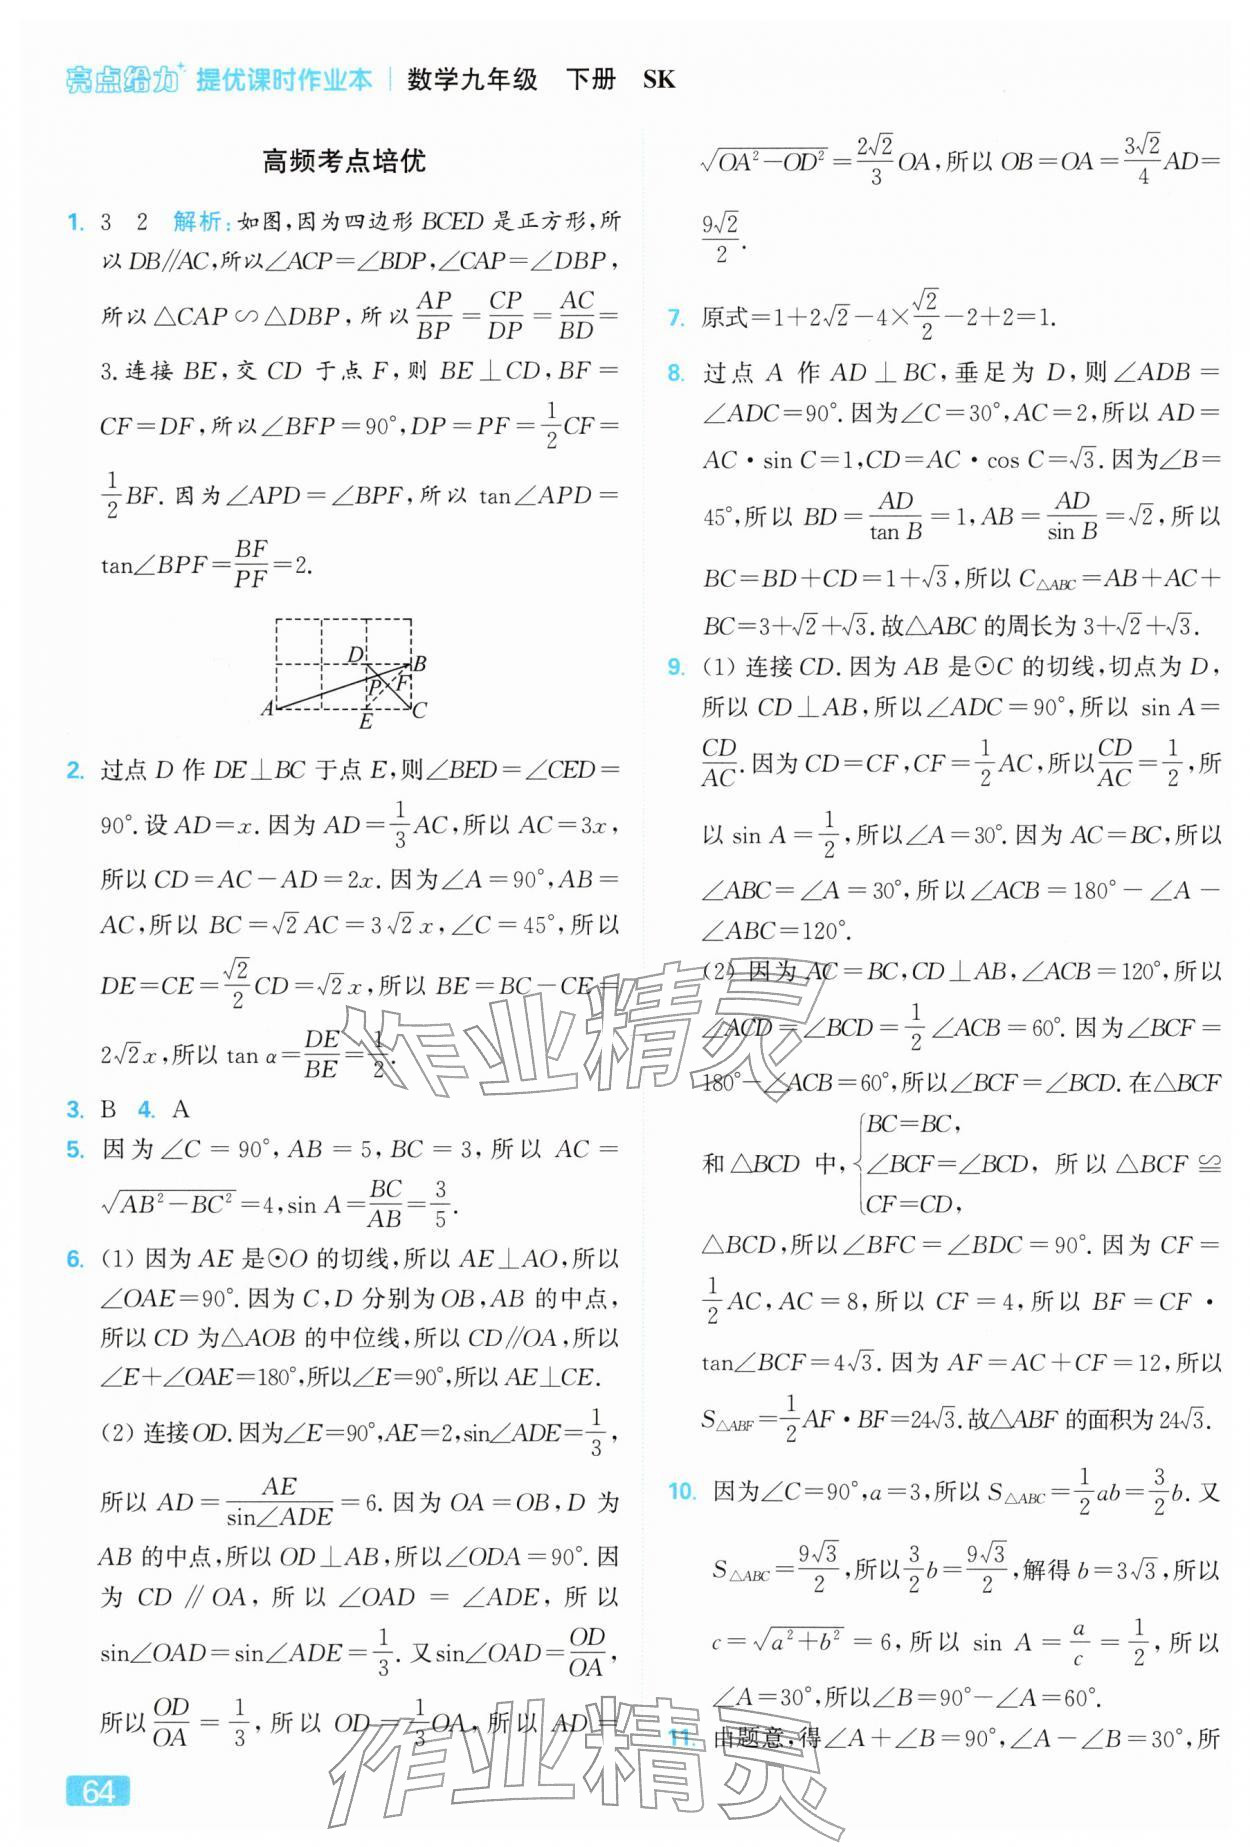 亮点给力 提优课时作业本 | 数学九年级 下册 SK
高频考点培优
1. 3 2 解析:如图,因为四边形 BCED 是正方形,所
以 DB∥AC,所以∠ACP=∠BDP,∠CAP=∠DBP,
所以△CAP∽△DBP,所以 AP/BP = CP/DP = AC/BD =
3.连接 BE,交 CD 于点 F,则 BE⊥CD,BF=
CF=DF,所以∠BFP=90°,DP=PF=1/2 CF=
1/2 BF.因为∠APD=∠BPF,所以 tan∠APD=
tan∠BPF=BF/PF=2.
D B
P F
A E C
2. 过点 D 作 DE⊥BC 于点 E,则∠BED=∠CED=
90°.设 AD=x.因为 AD=1/3 AC,所以 AC=3x,
所以 CD=AC-AD=2x.因为∠A=90°,AB=
AC,所以 BC=√2 AC=3√2 x,∠C=45°,所以
DE=CE=√2/2 CD=√2 x,所以 BE=BC-CE=
2√2 x,所以 tan α=DE/BE=1/2.
3. B 4. A
5. 因为∠C=90°,AB=5,BC=3,所以 AC=
√(AB²-BC²)=4,sin A=BC/AB=3/5.
6. (1) 因为 AE 是⊙O 的切线,所以 AE⊥AO,所以
∠OAE=90°.因为 C,D 分别为 OB,AB 的中点,
所以 CD 为△AOB 的中位线,所以 CD∥OA,所以
∠E+∠OAE=180°,所以∠E=90°,所以 AE⊥CE.
(2) 连接 OD.因为∠E=90°,AE=2,sin∠ADE=1/3,
所以 AD=AE/sin∠ADE=6.因为 OA=OB,D 为
AB 的中点,所以 OD⊥AB,所以∠ODA=90°.因
为 CD∥OA,所以∠OAD=∠ADE,所以
sin∠OAD=sin∠ADE=1/3.又 sin∠OAD=OD/OA,
所以 OD/OA=1/3,所以 OD=1/3 OA,所以 AD=
64
√(OA²-OD²)=2√2/3 OA,所以 OB=OA=3√2/4 AD=
9√2/2.
7. 原式=1+2√2-4×√2/2-2+2=1.
8. 过点 A 作 AD⊥BC,垂足为 D,则∠ADB=
∠ADC=90°.因为∠C=30°,AC=2,所以 AD=
AC·sin C=1,CD=AC·cos C=√3.因为∠B=
45°,所以 BD=AD/tan B=1,AB=AD/sin B=√2,所以
BC=BD+CD=1+√3,所以 C△ABC=AB+AC+
BC=3+√2+√3.故△ABC 的周长为 3+√2+√3.
9. (1) 连接 CD.因为 AB 是⊙C 的切线,切点为 D,
所以 CD⊥AB,所以∠ADC=90°,所以 sin A=
CD/AC.因为 CD=CF,CF=1/2 AC,所以 CD/AC=1/2,所
以 sin A=1/2,所以∠A=30°.因为 AC=BC,所以
∠ABC=∠A=30°,所以∠ACB=180°-∠A-
∠ABC=120°.
(2) 因为 AC=BC,CD⊥AB,∠ACB=120°,所以
∠ACD=∠BCD=1/2∠ACB=60°.因为∠BCF=
180°-∠ACB=60°,所以∠BCF=∠BCD.在△BCF
BC=BC,
和△BCD 中,{∠BCF=∠BCD, 所以△BCF≌
CF=CD,
△BCD,所以∠BFC=∠BDC=90°.因为 CF=
1/2 AC,AC=8,所以 CF=4,所以 BF=CF·
tan∠BCF=4√3.因为 AF=AC+CF=12,所以
S△ABF=1/2 AF·BF=24√3.故△ABF 的面积为 24√3.
10. 因为∠C=90°,a=3,所以 S△ABC=1/2 ab=3/2 b.又
S△ABC=9√3/2,所以 3/2 b=9√3/2,解得 b=3√3,所以
c=√(a²+b²)=6,所以 sin A=a/c=1/2,所以
∠A=30°,所以∠B=90°-∠A=60°.
11. 由题意,得∠A+∠B=90°,∠A-∠B=30°,所
作业精灵
作业精灵